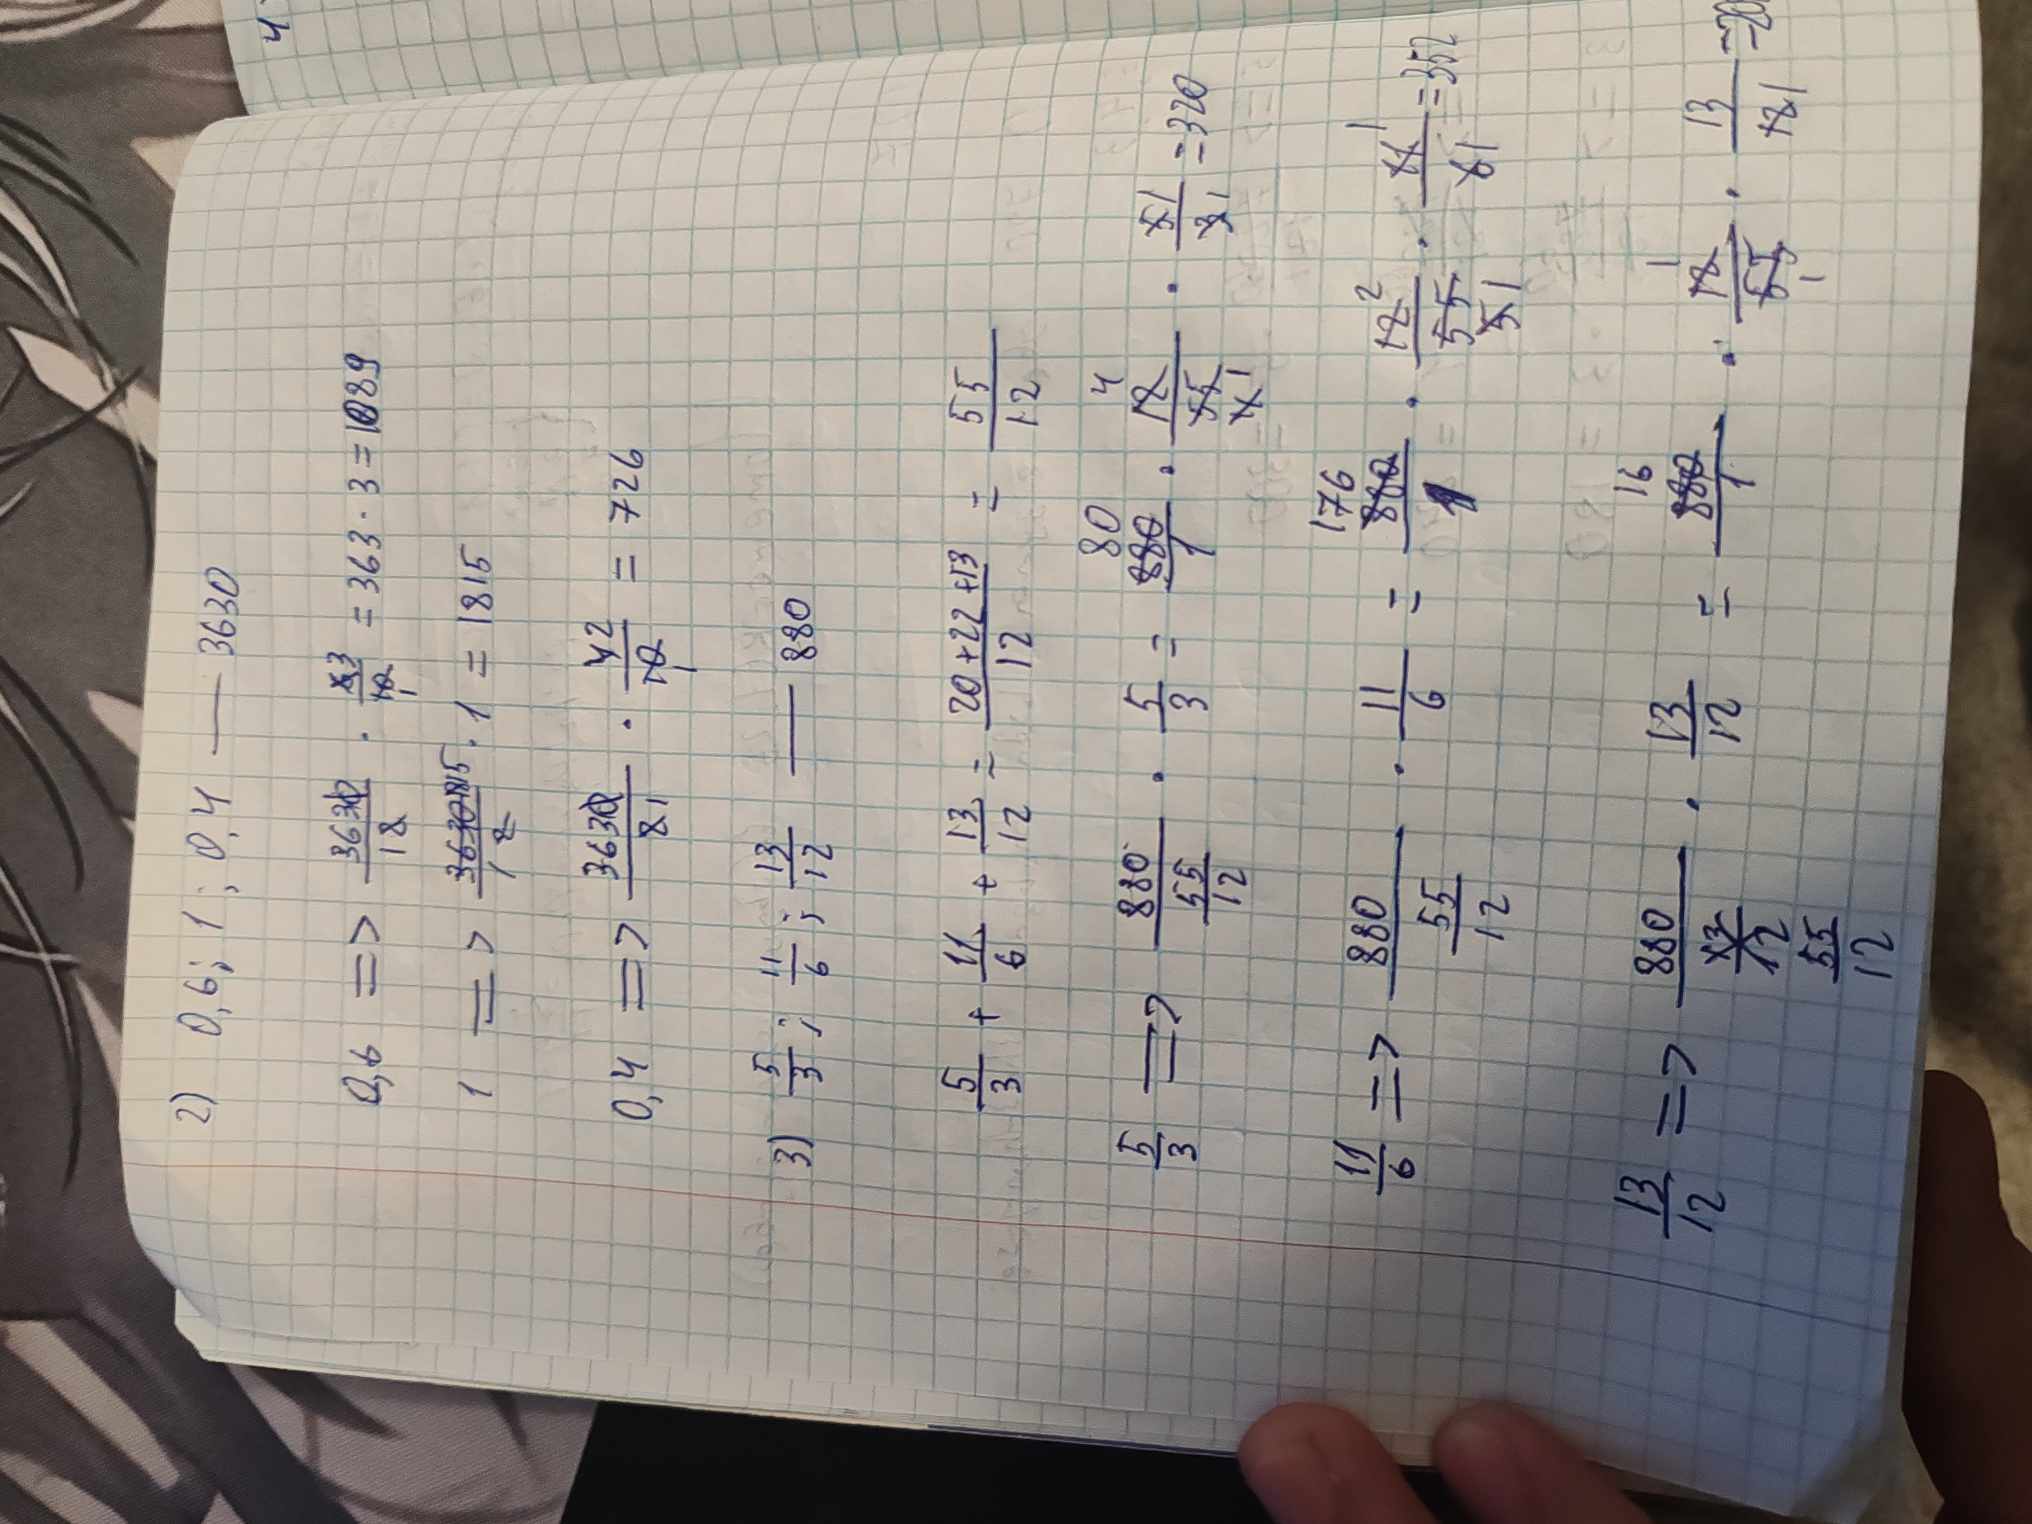 2) 0,6; 1; 0,4 — 3630
0,6 => 3630/1 2 · 6 3/10 1 = 363 · 3 = 1089
1 => 3630 1815/1 2 · 1 = 1815
0,4 => 3630/2 1 · 4 2/10 1 = 726
3) 5/3; 11/6; 13/12 — 880
5/3 + 11/6 + 13/12 = 20+22+13/12 = 55/12
5/3 => 880/55/12 · 5/3 = 880 80/1 · 12 4/55 11 1 · 5 1/3 1 = 320
11/6 => 880/55/12 · 11/6 = 880 176/1 · 12 2/55 5 1 · 11 1/6 1 = 352
13/12 => 880/55/12 · 13/12 = 880 16/1 · 12 1/55 1 · 13/12 1